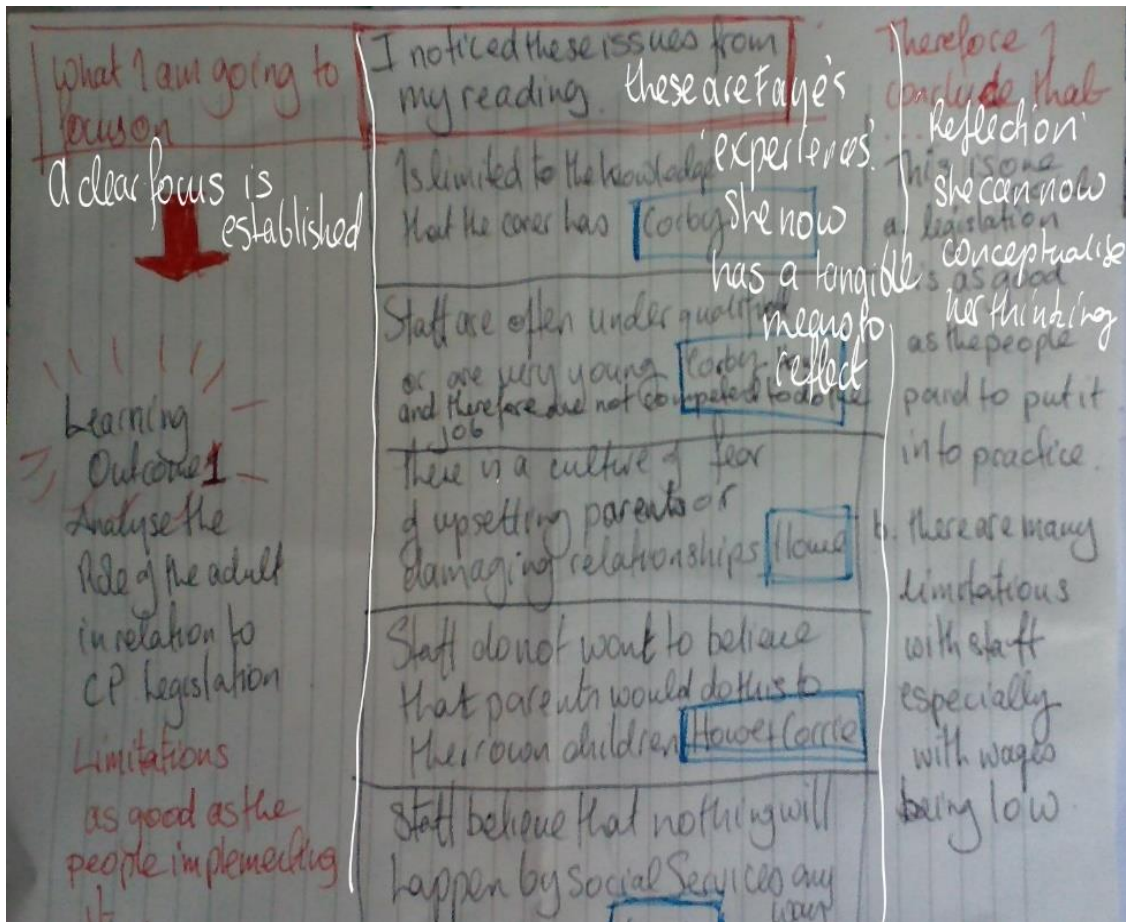 What I am going to
focus on
A clear focus is
established
Learning
Outcome 1
Analyse the
Role of the adult
in relation to
CP Legislation
Limitations
as good as the
people implementing
it
I noticed these issues from
my reading.
these are Faye's
'experiences'.
she now
has a tangible
means to
reflect
Is limited to the knowledge
that the carer has Corby
Staff are often under qualified
or are very young Corby
and therefore are not competent to do the
job
there is a culture of fear
of upsetting parents or
damaging relationships Howe
Staff do not want to believe
that parents would do this to
their own children Howe+Corrie
Staff believe that nothing will
happen by Social Services any
way
Therefore I
conclude that
Reflection
she can now
conceptualise
her thinking
This is one
a. legislation
is as good
as the people
paid to put it
into practice.
b. there are many
limitations
with staff
especially
with wages
being low